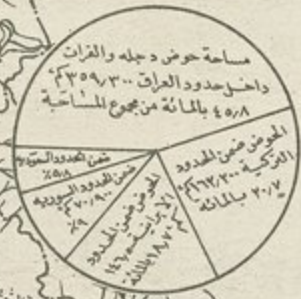 مساحة حوض دجله والفرات
داخل حدود العراق ٣٥٩٫٣٠٠ كم٢
٤٥٫٨ بالمائة من مجموع المساحة
الحوض ضمن الحدود
التركية ١٦٢٫٢٠٠ كم٢
٢٠٫٧ بالمائه
الحوض ضمن الحدود
الايرانية
١٨٫٧ بالمائة
ضمن الحدود السوريه
٧٠٫٩٠٠ كم٢
٩٪
ضمن الحدود
٥٫٨٪